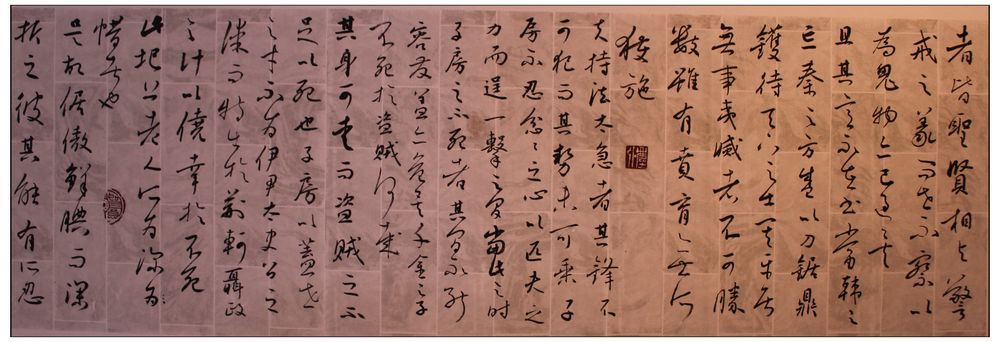 者皆聖賢相與警
戒之義而世不察以
為鬼物亦已過矣
且其意不在書當韓之
亡秦之方盛以刀鋸鼎
鑊待天下之士其平居
無事夷滅者不可勝
數雖有賁育無所
獲施
夫持法太急者其鋒不
可犯而其勢未可乘子
房不忍忿忿之心以匹夫之
力而逞一擊之間當此之時
子房之不死者其間不能
容髮蓋亦危矣千金之子
不死於盜賊何哉
其身可愛而盜賊之不
足以死也子房以蓋世
之才不為伊尹太公之
謀而特出於荊軻聶政
之計以僥幸於不死
此圯上老人所為深為
惜者也
是故倨傲鮮腆而深
折之彼其能有所忍